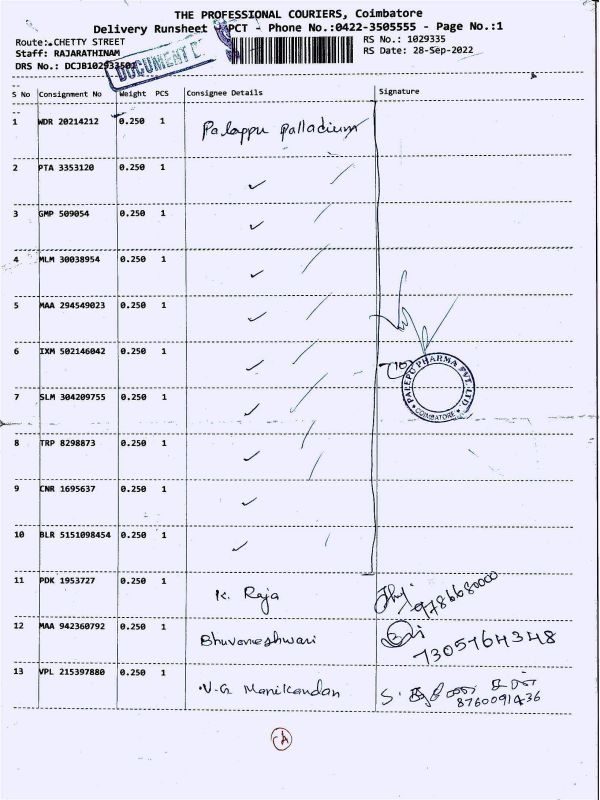 THE PROFESSIONAL COURIERS, Coimbatore
Delivery Runsheet PCT - Phone No.:0422-3505555 - Page No.:1
Route:.CHETTY STREET RS No.: 1029335
Staff: RAJARATHINAM RS Date: 28-Sep-2022
DRS No.: DCJB102933502
DOCUMENT
S No Consignment No Weight PCS Consignee Details Signature
1 WDR 20214212 0.250 1 Palappu palladium
2 PTA 3353120 0.250 1
3 GMP 509054 0.250 1
4 MLM 30038954 0.250 1
5 MAA 294549023 0.250 1
6 IXM 502146042 0.250 1
PALEPU PHARMA PVT. LTD
COIMBATORE
7 SLM 304209755 0.250 1
8 TRP 8298873 0.250 1
9 CNR 1695637 0.250 1
10 BLR 5151098454 0.250 1
11 PDK 1953727 0.250 1 K. Raja 9786680000
12 MAA 942360792 0.250 1 Bhuvaneshwari
7305764348
13 VPL 215397880 0.250 1 V.G Manikandan
8760091436